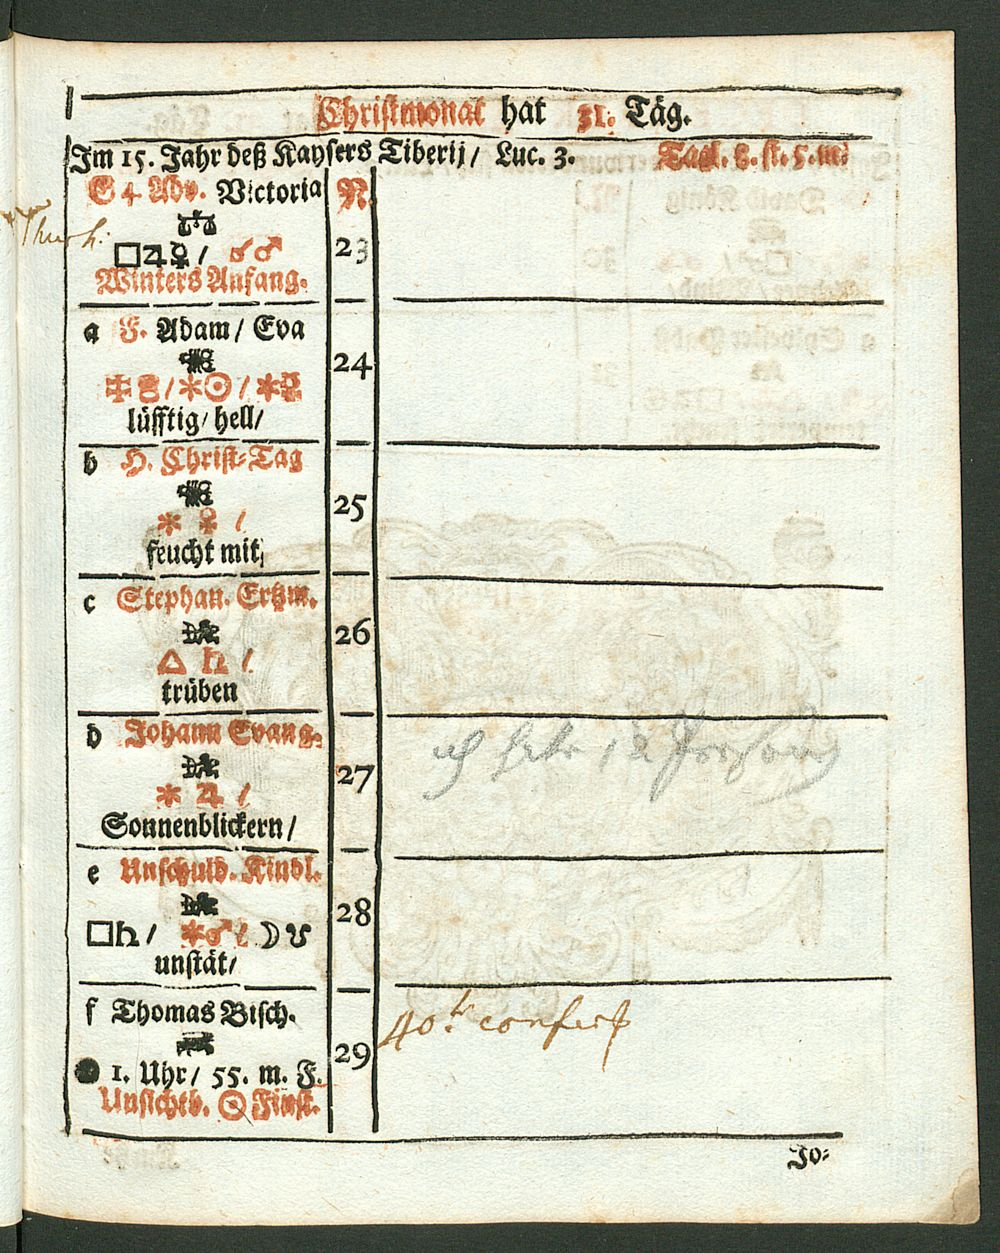 Christmonat hat 31. Täg.
Im 15. Jahr deß Kaysers Tiberij / Luc. 3. Tagl. 8. st. 5. m.
G 4 Adv. Victoria N.
□♃☿ / ☌♂ 23
Winters Anfang.
a F. Adam / Eva
24
lüfftig / hell /
b H. Christ-Tag
25
✶ ♀ /
feucht mit
c Stephan. Ertzm.
26
△ ♄ /
trüben
d Johann Evang.
ich hab 12
27
✶ ♃ /
Sonnenblickern /
e Unschuld. Kindl.
28
□♄ / ✶♂ / ☽
unstät /
f Thomas Bisch.
40
29
● 1. Uhr / 55. m. F.
Unsichtb. ☉ Finst.
Jo-